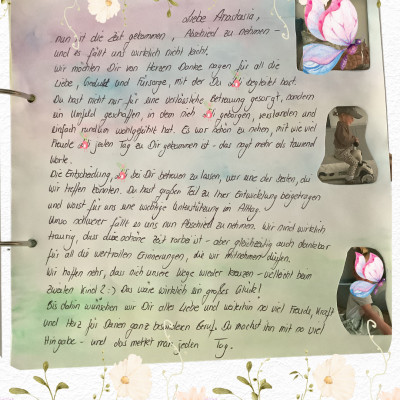 Liebe Anastasia,
nun ist die Zeit gekommen, Abschied zu nehmen -
und es fällt uns wirklich nicht leicht.
Wir möchten Dir von Herzen Danke sagen für all die
Liebe, Geduld und Fürsorge, mit der Du begleitet hast.
Du hast nicht nur für eine verlässliche Betreuung gesorgt, sondern
ein Umfeld geschaffen, in dem sich geborgen, verstanden und
einfach rundum wohlgefühlt hat. Es war schön zu sehen, mit wie viel
Freude jeden Tag zu Dir gekommen ist - das sagt mehr als tausend
Worte.
Die Entscheidung, bei Dir betreuen zu lassen, war eine der besten, die
wir treffen konnten. Du hast großen Teil zu Ihrer Entwicklung beigetragen
und warst für uns eine wichtige Unterstützung im Alltag.
Umso schwerer fällt es uns nun Abschied zu nehmen. Wir sind wirklich
traurig, dass diese schöne Zeit vorbei ist - aber gleichzeitig auch dankbar
für all die wertvollen Erinnerungen, die wir mitnehmen dürfen.
Wir hoffen sehr, dass sich unsere Wege wieder kreuzen - vielleicht beim
zweiten Kind? :) Das wäre wirklich ein großes Glück!
Bis dahin wünschen wir Dir alles Liebe und weiterhin so viel Freude, Kraft
und Herz für Deinen ganz besonderen Beruf. Du machst ihn mit so viel
Hingabe - und das merkt man jeden Tag.